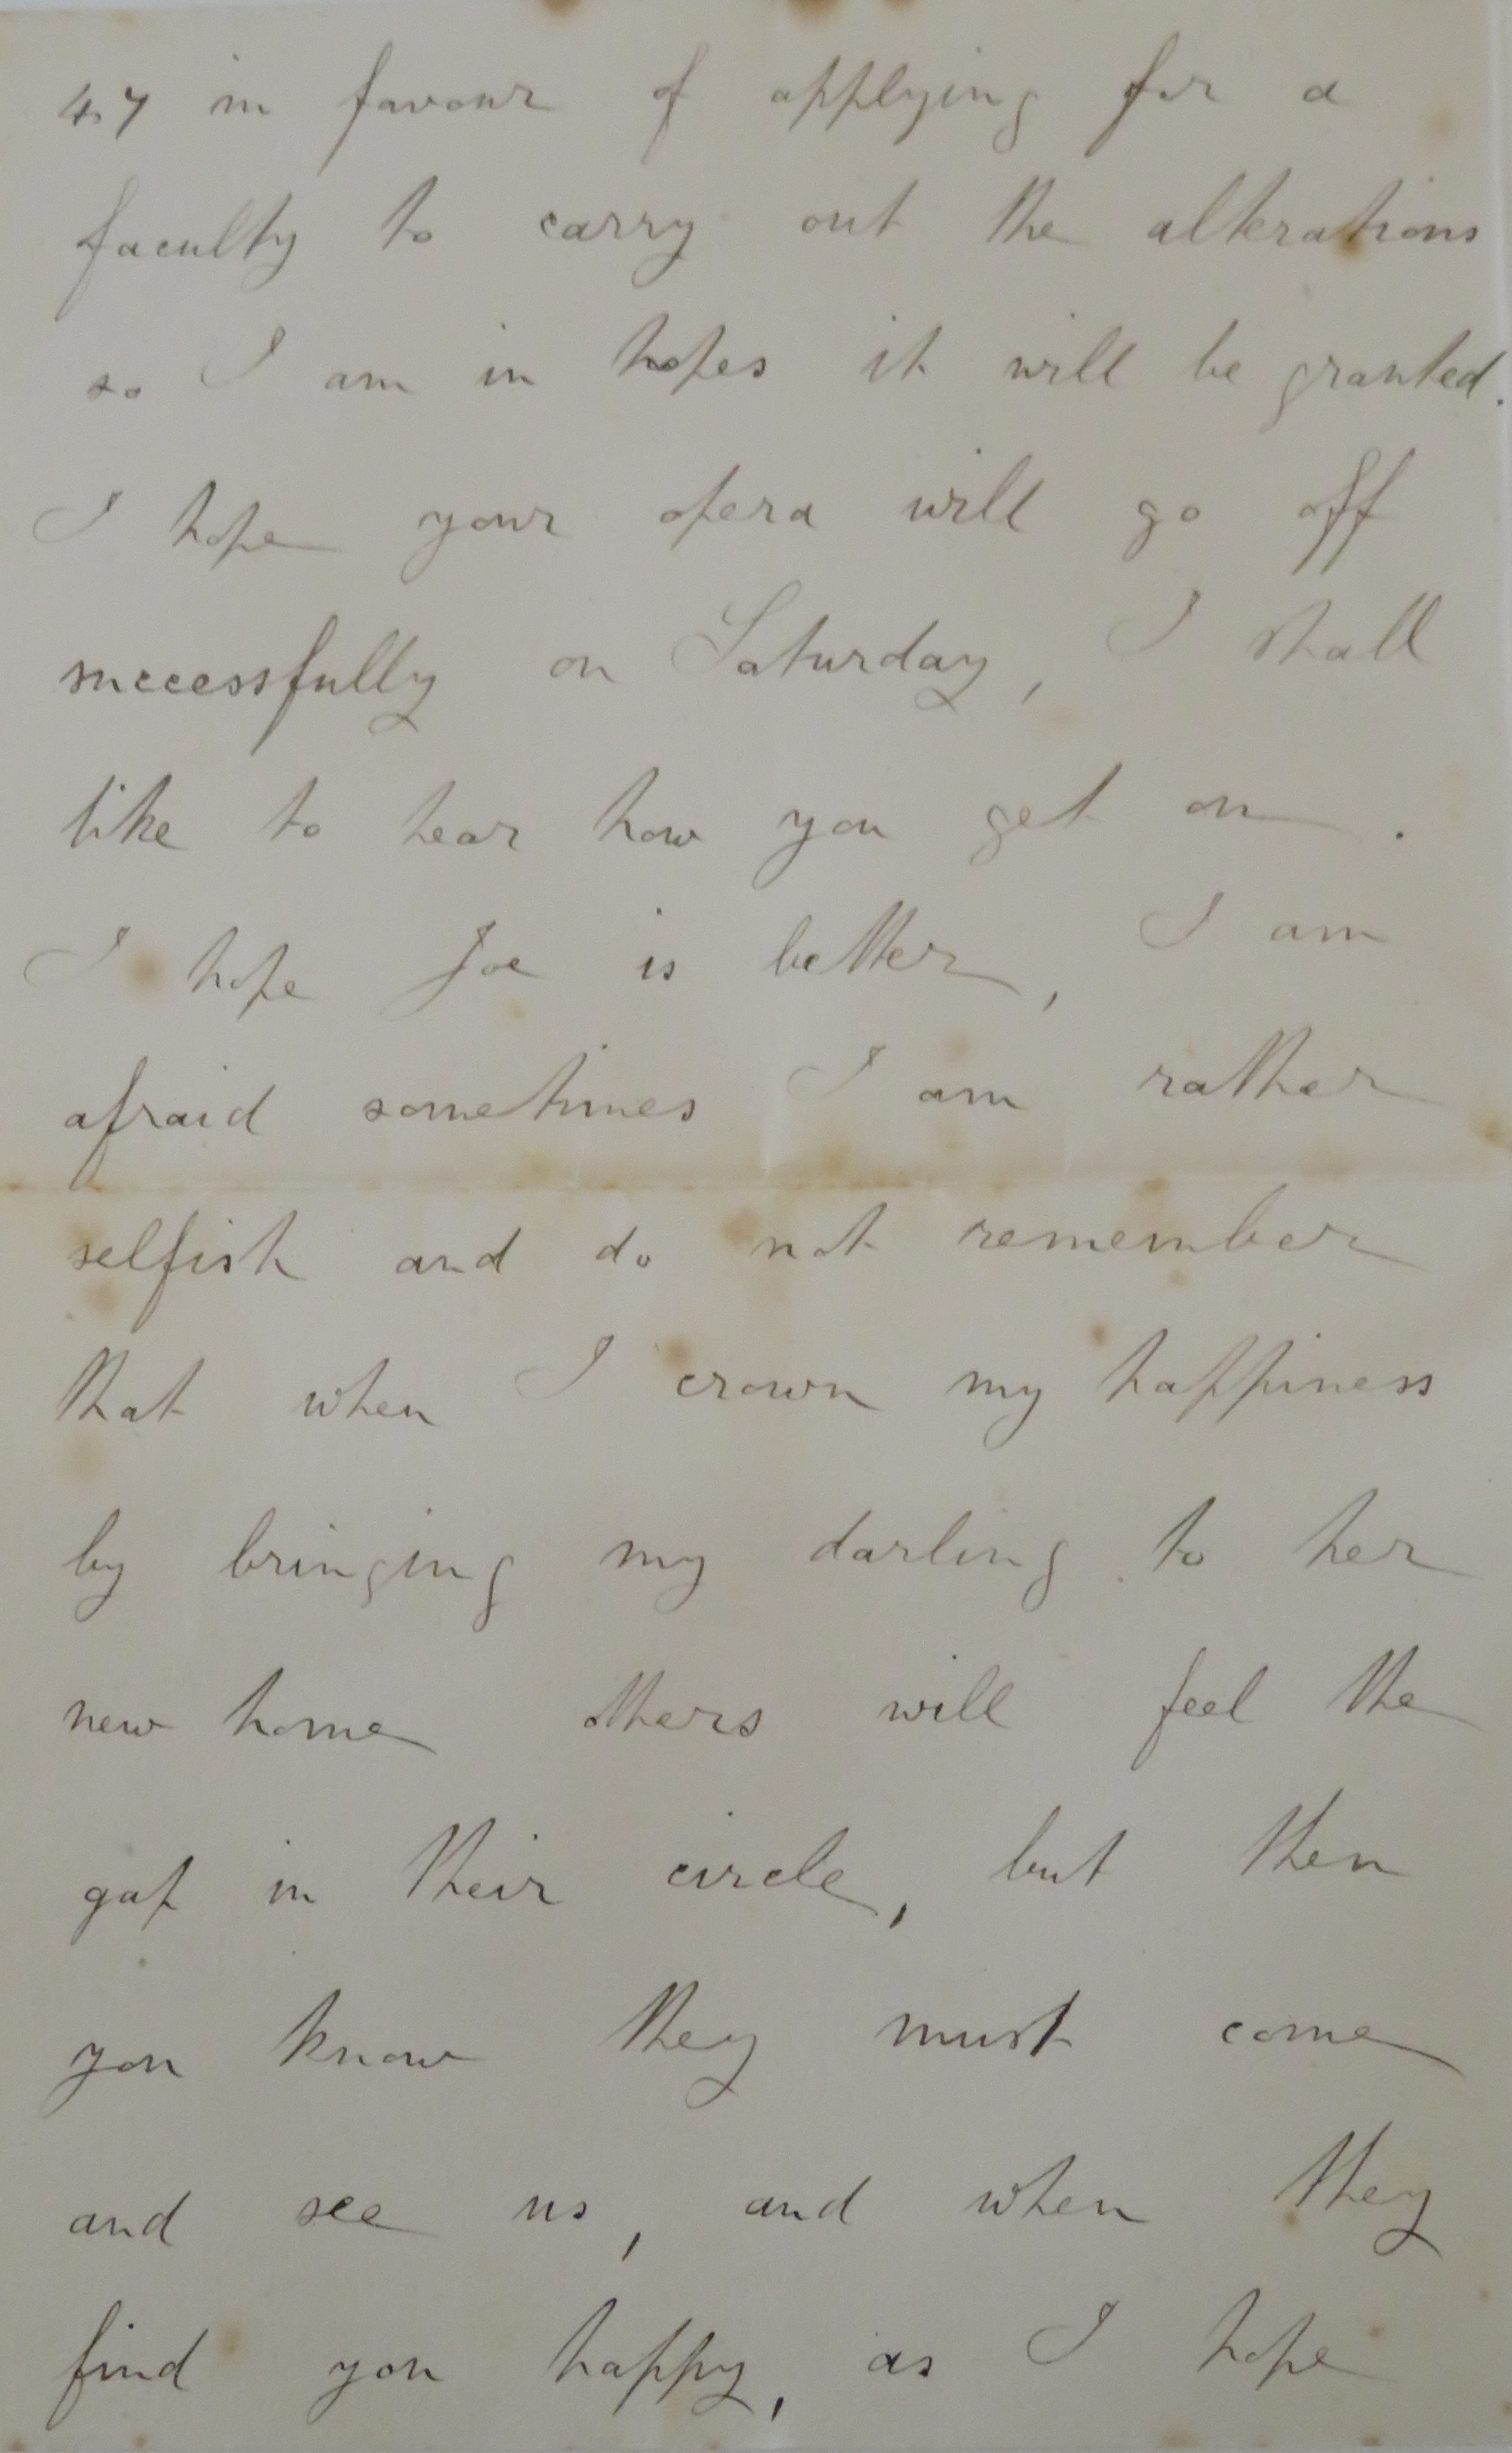 47 in favour of applying for a
faculty to carry out the alterations
so I am in hopes it will be granted.
I hope your opera will go off
successfully on Saturday, I shall
like to hear how you get on.
I hope Joe is better, I am
afraid sometimes I am rather
selfish and do not remember
that when I crown my happiness
by bringing my darling to her
new home others will feel the
gap in their circle, but then
you know they must come
and see us, and when they
find you happy, as I hope